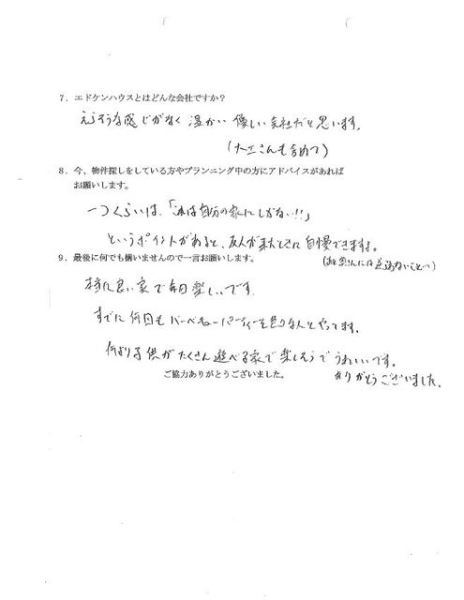 7．エドケンハウスとはどんな会社ですか？
えらそうな感じがなく温かい優しい会社だと思います。
（大工さんも含めて）
8．今、物件探しをしている方やプランニング中の方にアドバイスがあれば
お願いします。
一つくらいは、「これは自分の家にしかない!!」
というポイントがあると、友人が来たときに自慢できますよ。
9．最後に何でも構いませんので一言お願いします。
本当に良い家で毎日楽しいです。
すでに何回もバーベキューパーティーを色々な人とやってます。
何より子供がたくさん遊べる家で楽しそうでうれしいです。
ありがとうございました。
ご協力ありがとうございました。